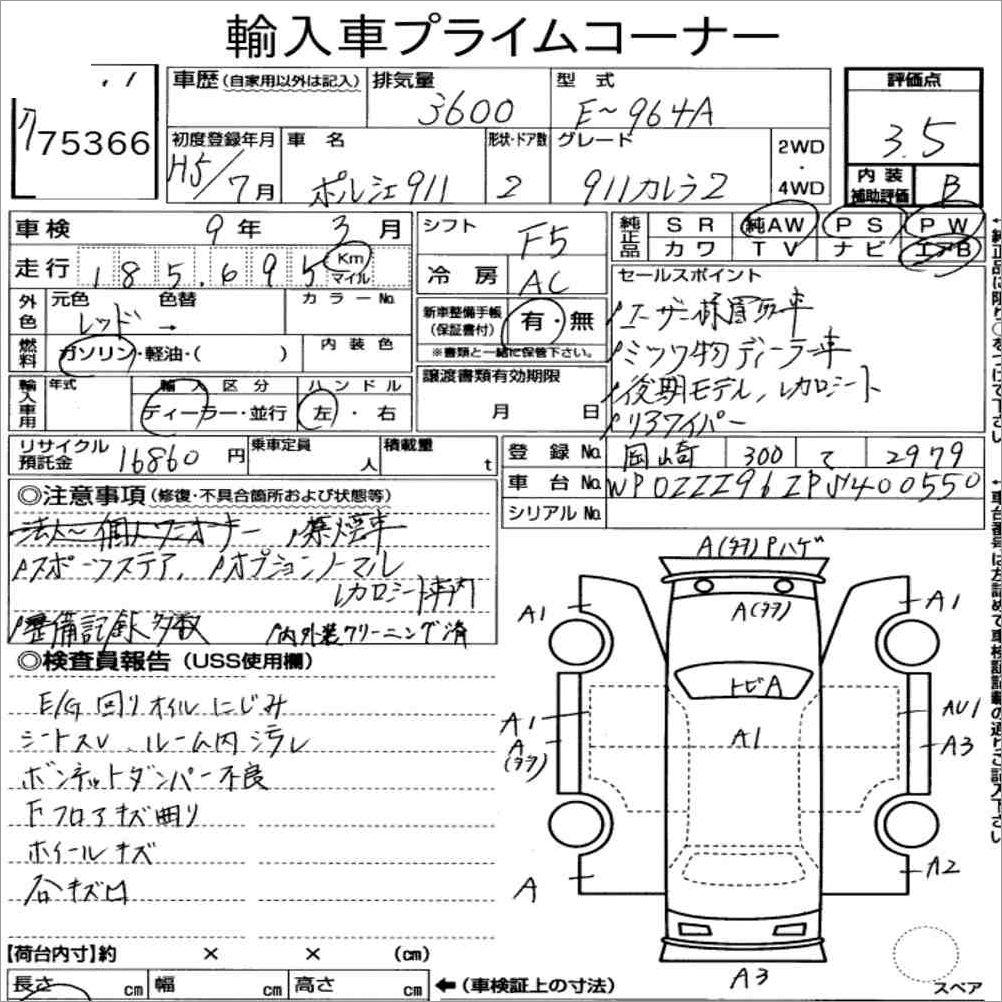 輸入車プライムコーナー
75366
車歴 (自家用以外は記入)
排気量
3600
型式
E~964A
評価点
3.5
内装補助評価
B
初度登録年月
H5/7月
車名
ポルシェ911
形状・ドア数
2
グレード
911カレラ2
2WD
・
4WD
車検 9年 3月
走行 185,695 Km マイル
外色 元色 レッド → 色替 カラーNo.
燃料 ガソリン・軽油・( ) 内装色
輸入車用 年式 輸入区分 ディーラー・並行 ハンドル 左・右
シフト F5
冷房 AC
新車整備手帳(保証書付) 有・無
※書類と一緒に保管下さい。
譲渡書類有効期限
月 日
純正品 SR 純AW PS PW
カワ TV ナビ エアB
セールスポイント
ユーザー様買取車
ミツワ物ディーラー車
後期モデル、レカロシート
リアワイパー
リサイクル預託金 16860円
乗車定員 人
積載量 t
登録No. 岡崎 300 て 2979
車台No. WP0ZZZ96ZPS400550
シリアルNo.
◎注意事項 (修復・不具合箇所および状態等)
法人~個人ワンオーナー 禁煙車
スポーツステア、オプションノーマル
レカロシート車内
整備記録多数 内外装クリーニング済
◎検査員報告 (USS使用欄)
E/G回りオイルにじみ
シートスレ、ルーム内汚レ
ボンネットダンパー不良
Fフロアキズ曲り
ホイールキズ
各キズ凹
A(タタ) Pハゲ
A1
A(タタ)
A1
トビA
A1
A(タタ)
A1
AU1
A3
A
A2
A3
スペア
【荷台内寸】約 × × (cm)
長さ cm 幅 cm 高さ cm ←(車検証上の寸法)